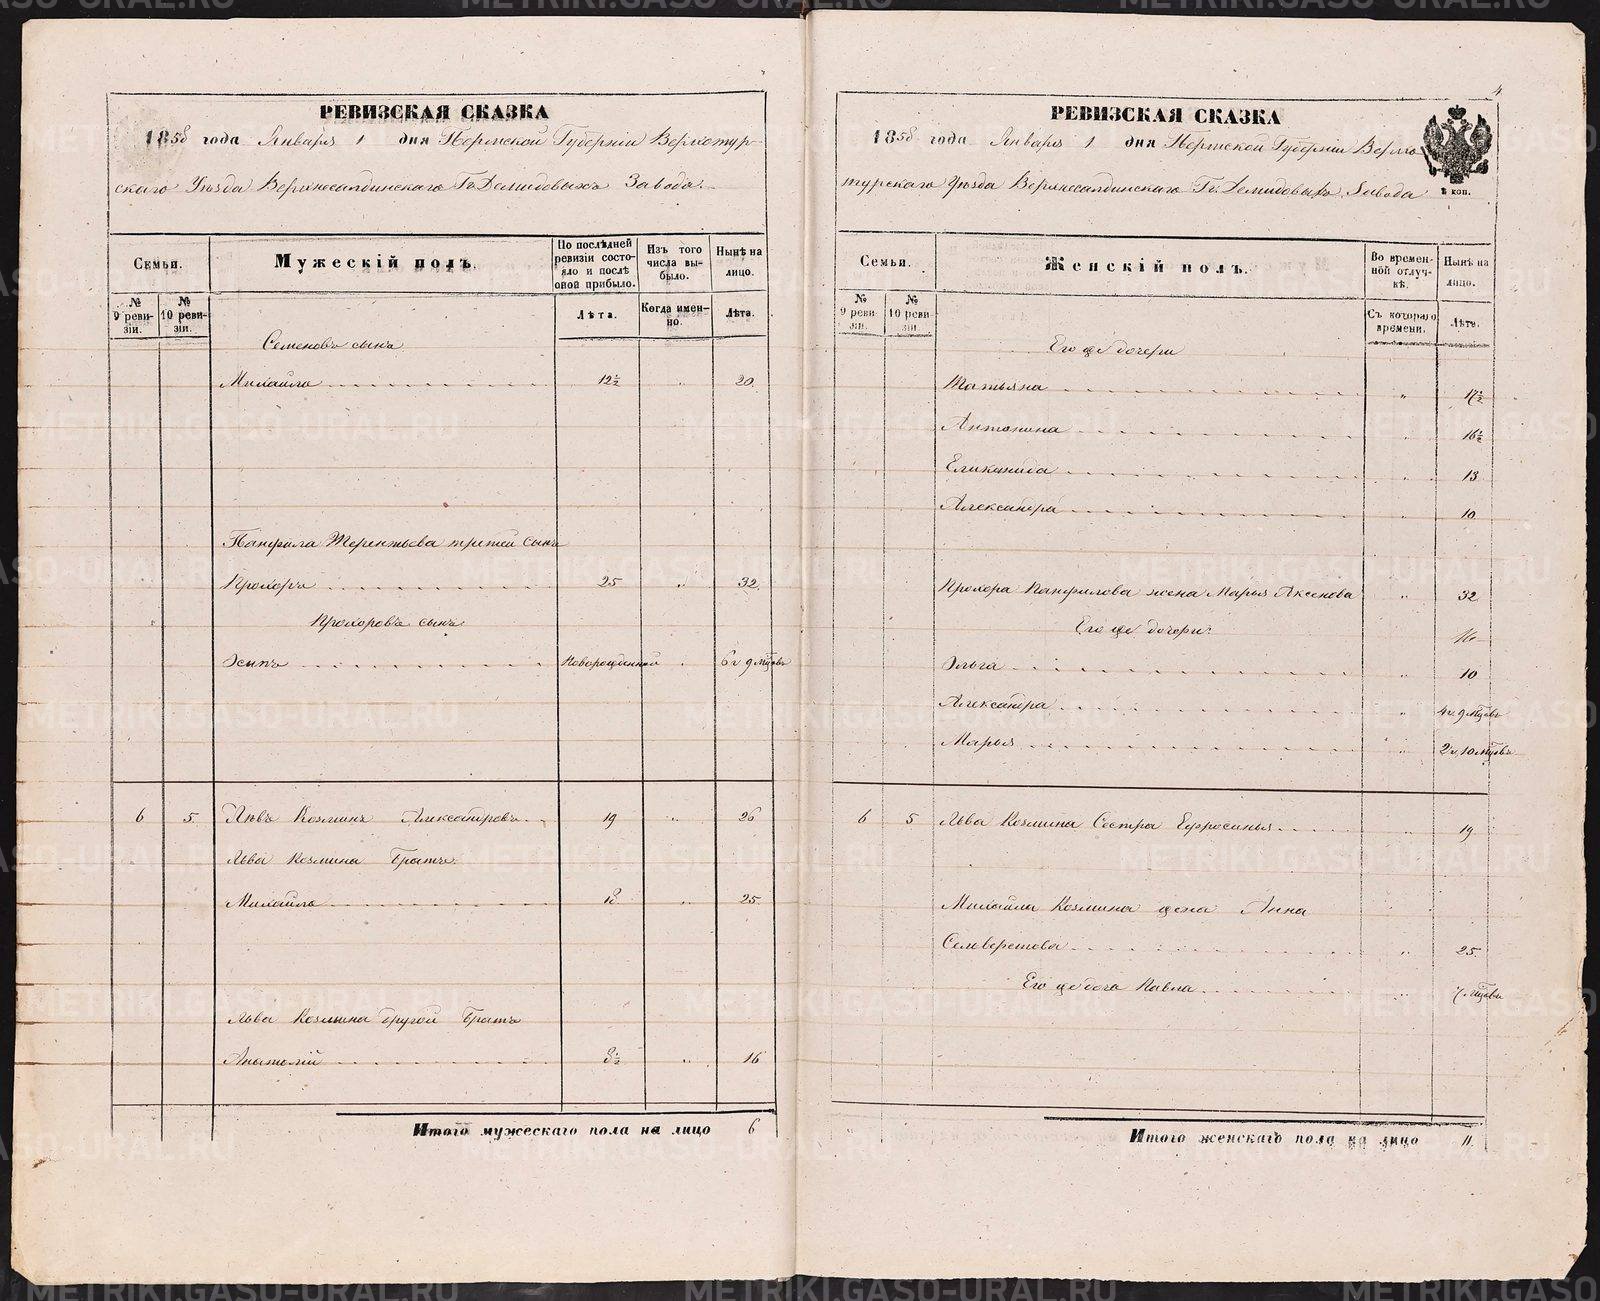 РЕВИЗСКАЯ СКАЗКА
1858 года Января 1 дня Пермской Губернии Верхотур-
скаго Уѣзда Верхнесалдинскаго Гг. Демидовыхъ Завода.
Семьи.
Мужескій полъ.
По послѣдней ревизіи состояло и послѣ оной прибыло.
Изъ того числа выбыло.
Нынѣ на лицо.
№ 9 ревизіи.
№ 10 ревизіи.
Лѣта.
Когда именно.
Лѣта.
Семеновъ сынъ
Михайло 12½ " 20.
Панфила Терентьева третей сынъ
Прохоръ 25 " 32.
Прохоровъ сынъ
Эсыпъ Новорожденной " 6 г 9 мцовъ
6 5 Лѣвъ Козминъ Александровъ 19 " 26
Льва Козмина Братъ.
Михайло 18 " 25.
Льва Козмина другой Братъ
Анатолій 8½ " 16
Итого мужескаго пола на лицо 6
4
РЕВИЗСКАЯ СКАЗКА
1858 года Января 1 дня Пермской Губернии Верхо
турскаго Уѣзда Верхнесалдинскаго Гг. Демидовыхъ Завода
коп.
Семьи.
Женскій полъ.
Во временной отлучкѣ.
Нынѣ на лицо.
№ 9 ревизіи.
№ 10 ревизіи.
Съ котораго времени.
Лѣта.
Его же дочери
Татьяна " 17½
Антонина " 16½
Еликанида " 13
Александра " 10
Прохора Панфилова жена Марья Аксенова " 32
Его же дочери:
16
Ольга " 10
Александра " 4 г. 9 мцовъ
Марья " 2 г. 10 мцовъ
6 5 Льва Козмина Сестра Ефросинья " 19
Михайлы Козмина жена Анна
Селверстова " 25
Его же дочь Павла " 7 мцовъ
Итого женскаго пола на лицо 11.
METRIKI.GASO-URAL.RU